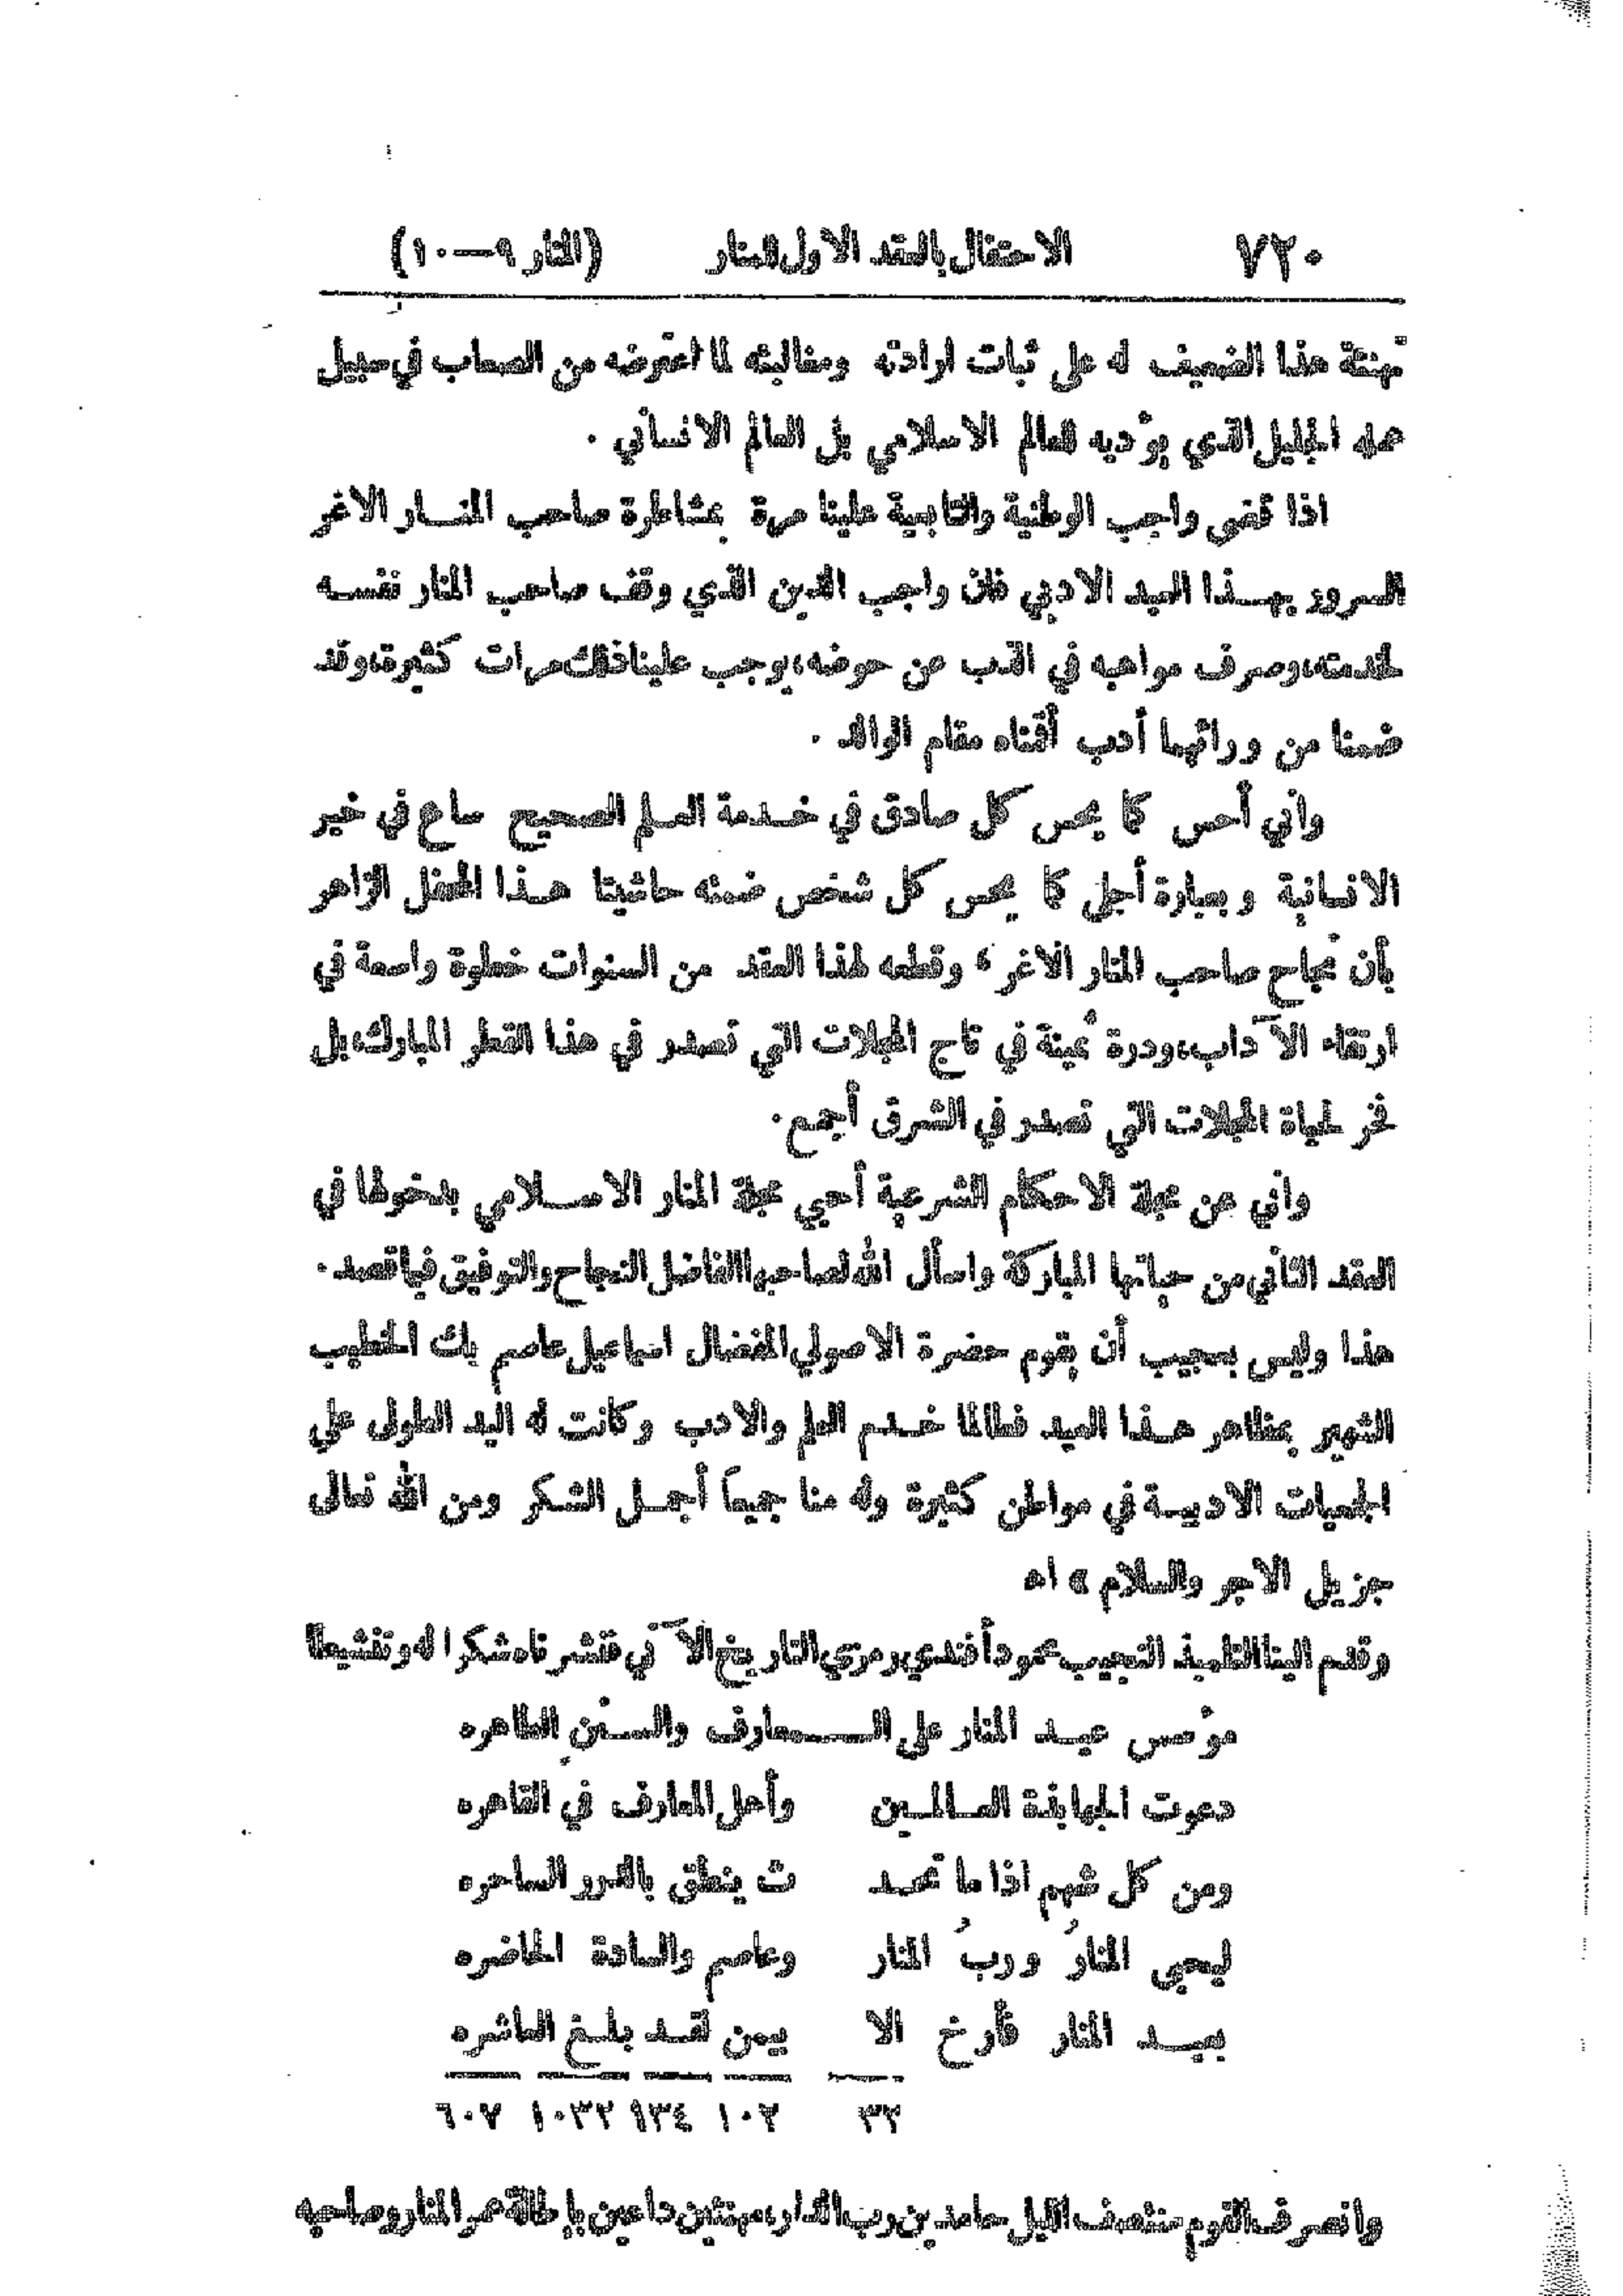 ٧٢٠ الاحتفال بالعقد الاول للمنار (المنار ٩—١٠)
تهنئة هذا الضعيف له على ثبات ارادته ومغالبته لما اعترضه من الصعاب في سبيل
عمله الجليل الذي يؤديه للعالم الاسلامي بل العالم الانساني .
اذا قضى واجب الوطنية والتابعية علينا مرة بمشاطرة صاحب المنار الاغر
السرور بهذا العيد الادبي فان واجب الدين الذي وقف صاحب المنار نفسه
لخدمته، وصرف مواهبه في الذب عن حوضه، يوجب علينا ذلك مرات كثيرة، وقد
ضمنا من ورائهما أدب أقمناه مقام الوالد .
واني أحس كما يحس كل صادق في خدمة العلم الصحيح ساع في خير
الانسانية وبعبارة أجلى كما يحس كل شخص ضمته حاشيتا هذا المحفل الزاهر
بأن نجاح صاحب المنار الاغر، وقطعه لهذا العقد من السنوات خطوة واسعة في
ارتقاء الآداب، ودرة ثمينة في تاج المجلات التي تصدر في هذا القطر المبارك، بل
فخر لحياة المجلات التي تصدر في الشرق أجمع.
واني عن مجلة الاحكام الشرعية أحيي مجلة المنار الاسلامي بدخولها في
العقد الثاني من حياتها المباركة واسأل الله لصاحبها الفاضل النجاح والتوفيق فيما قصد.
هذا وليس بعجيب أن يقوم حضرة الاصولي المفضال اسماعيل عاصم بك الخطيب
الشهير بمظاهر هذا العيد فطالما خدم العلم والادب وكانت له اليد الطولى على
الجمعيات الادبية في مواطن كثيرة وله منا جميعاً أجمل الشكر ومن الله تعالى
جزيل الاجر والسلام » اه
وقدم الينا التلميذ النجيب محمود أفندي رمزي التاريخ الآتي فنشرناه شكرا له وتنشيطا
مؤسس عيد المنار على الـمعارف والسنن الطاهره
دعوت الجهابذة العالمين وأهل المعارف في القاهره
ومن كل شهم اذا ما تحد ث ينطق بالدرر الساحره
ليحيى المنارُ وربُ المنار وعاصم والسادة الحاضره
بعيد المنار فأرخ الا بيمن لقد بلغ العاشره
٣٢ ١٠٢ ١٣٤ ١٠٣٢ ٦٠٧
وانصرف القوم منتصف الليل حامدين رب الدار، مهنئين داعين بإطالة عمر المنار وصاحبه